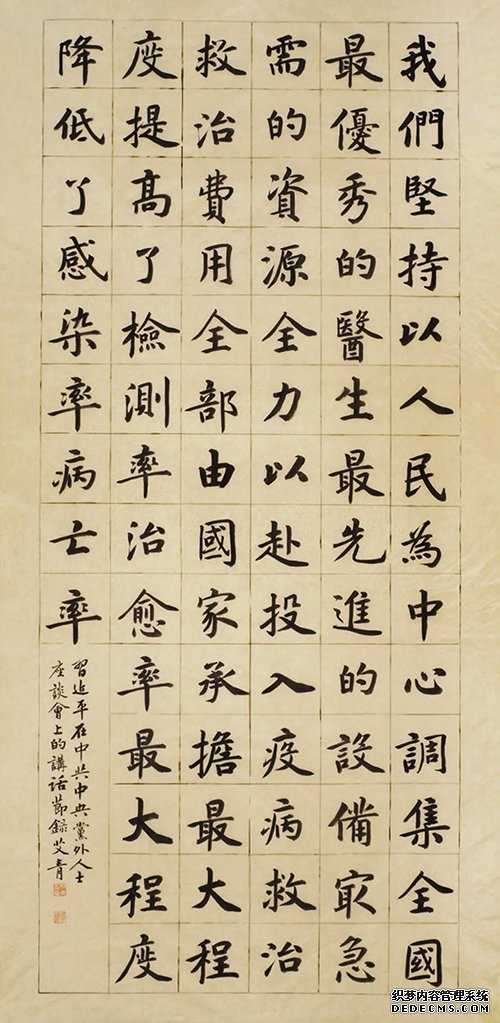 我們堅持以人民為中心調集全國
最優秀的醫生最先進的設備冣急
需的資源全力以赴投入疫病救治
救治費用全部由國家承擔最大程
度提高了檢測率治愈率最大程度
降低了感染率病亡率
習近平在中共中央黨外人士
座談會上的講話節錄艾青
织梦内容管理系统
DEDECMS.COM